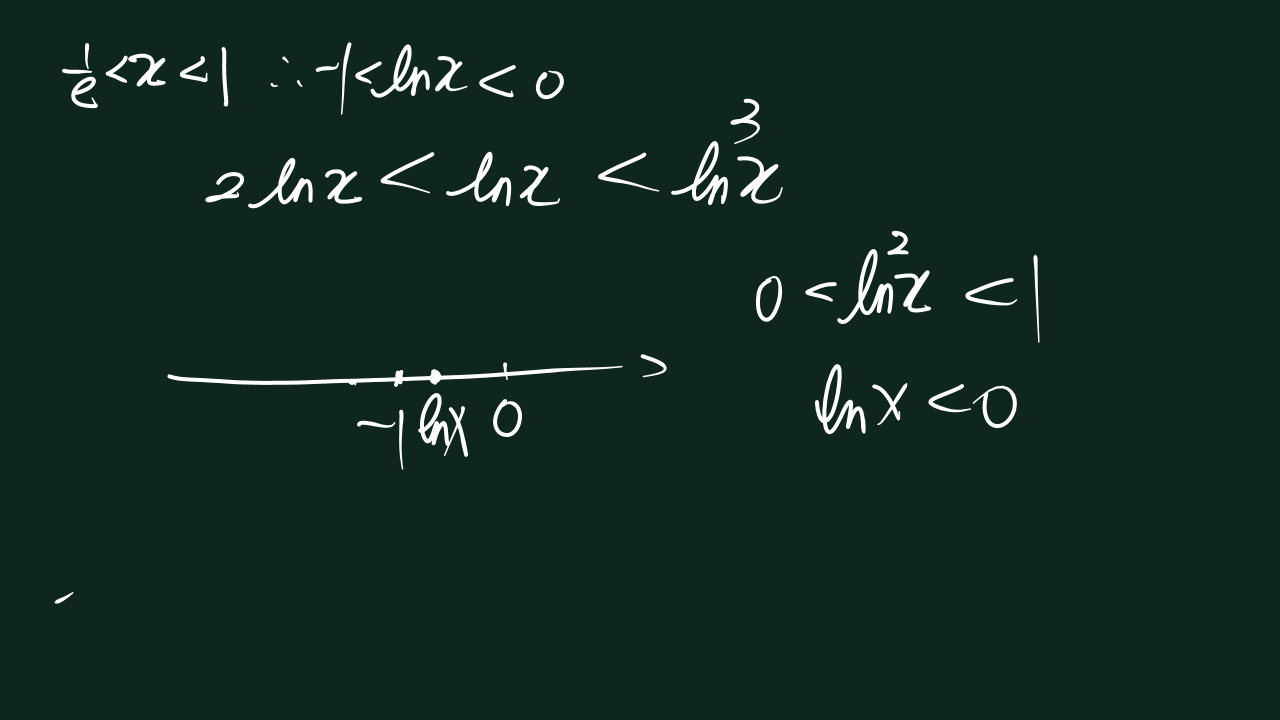 1/e < x < 1 ∴ -1 < ln x < 0
2 ln x < ln x < ln³x
0 < ln²x < 1
ln x < 0
-1 ln x 0